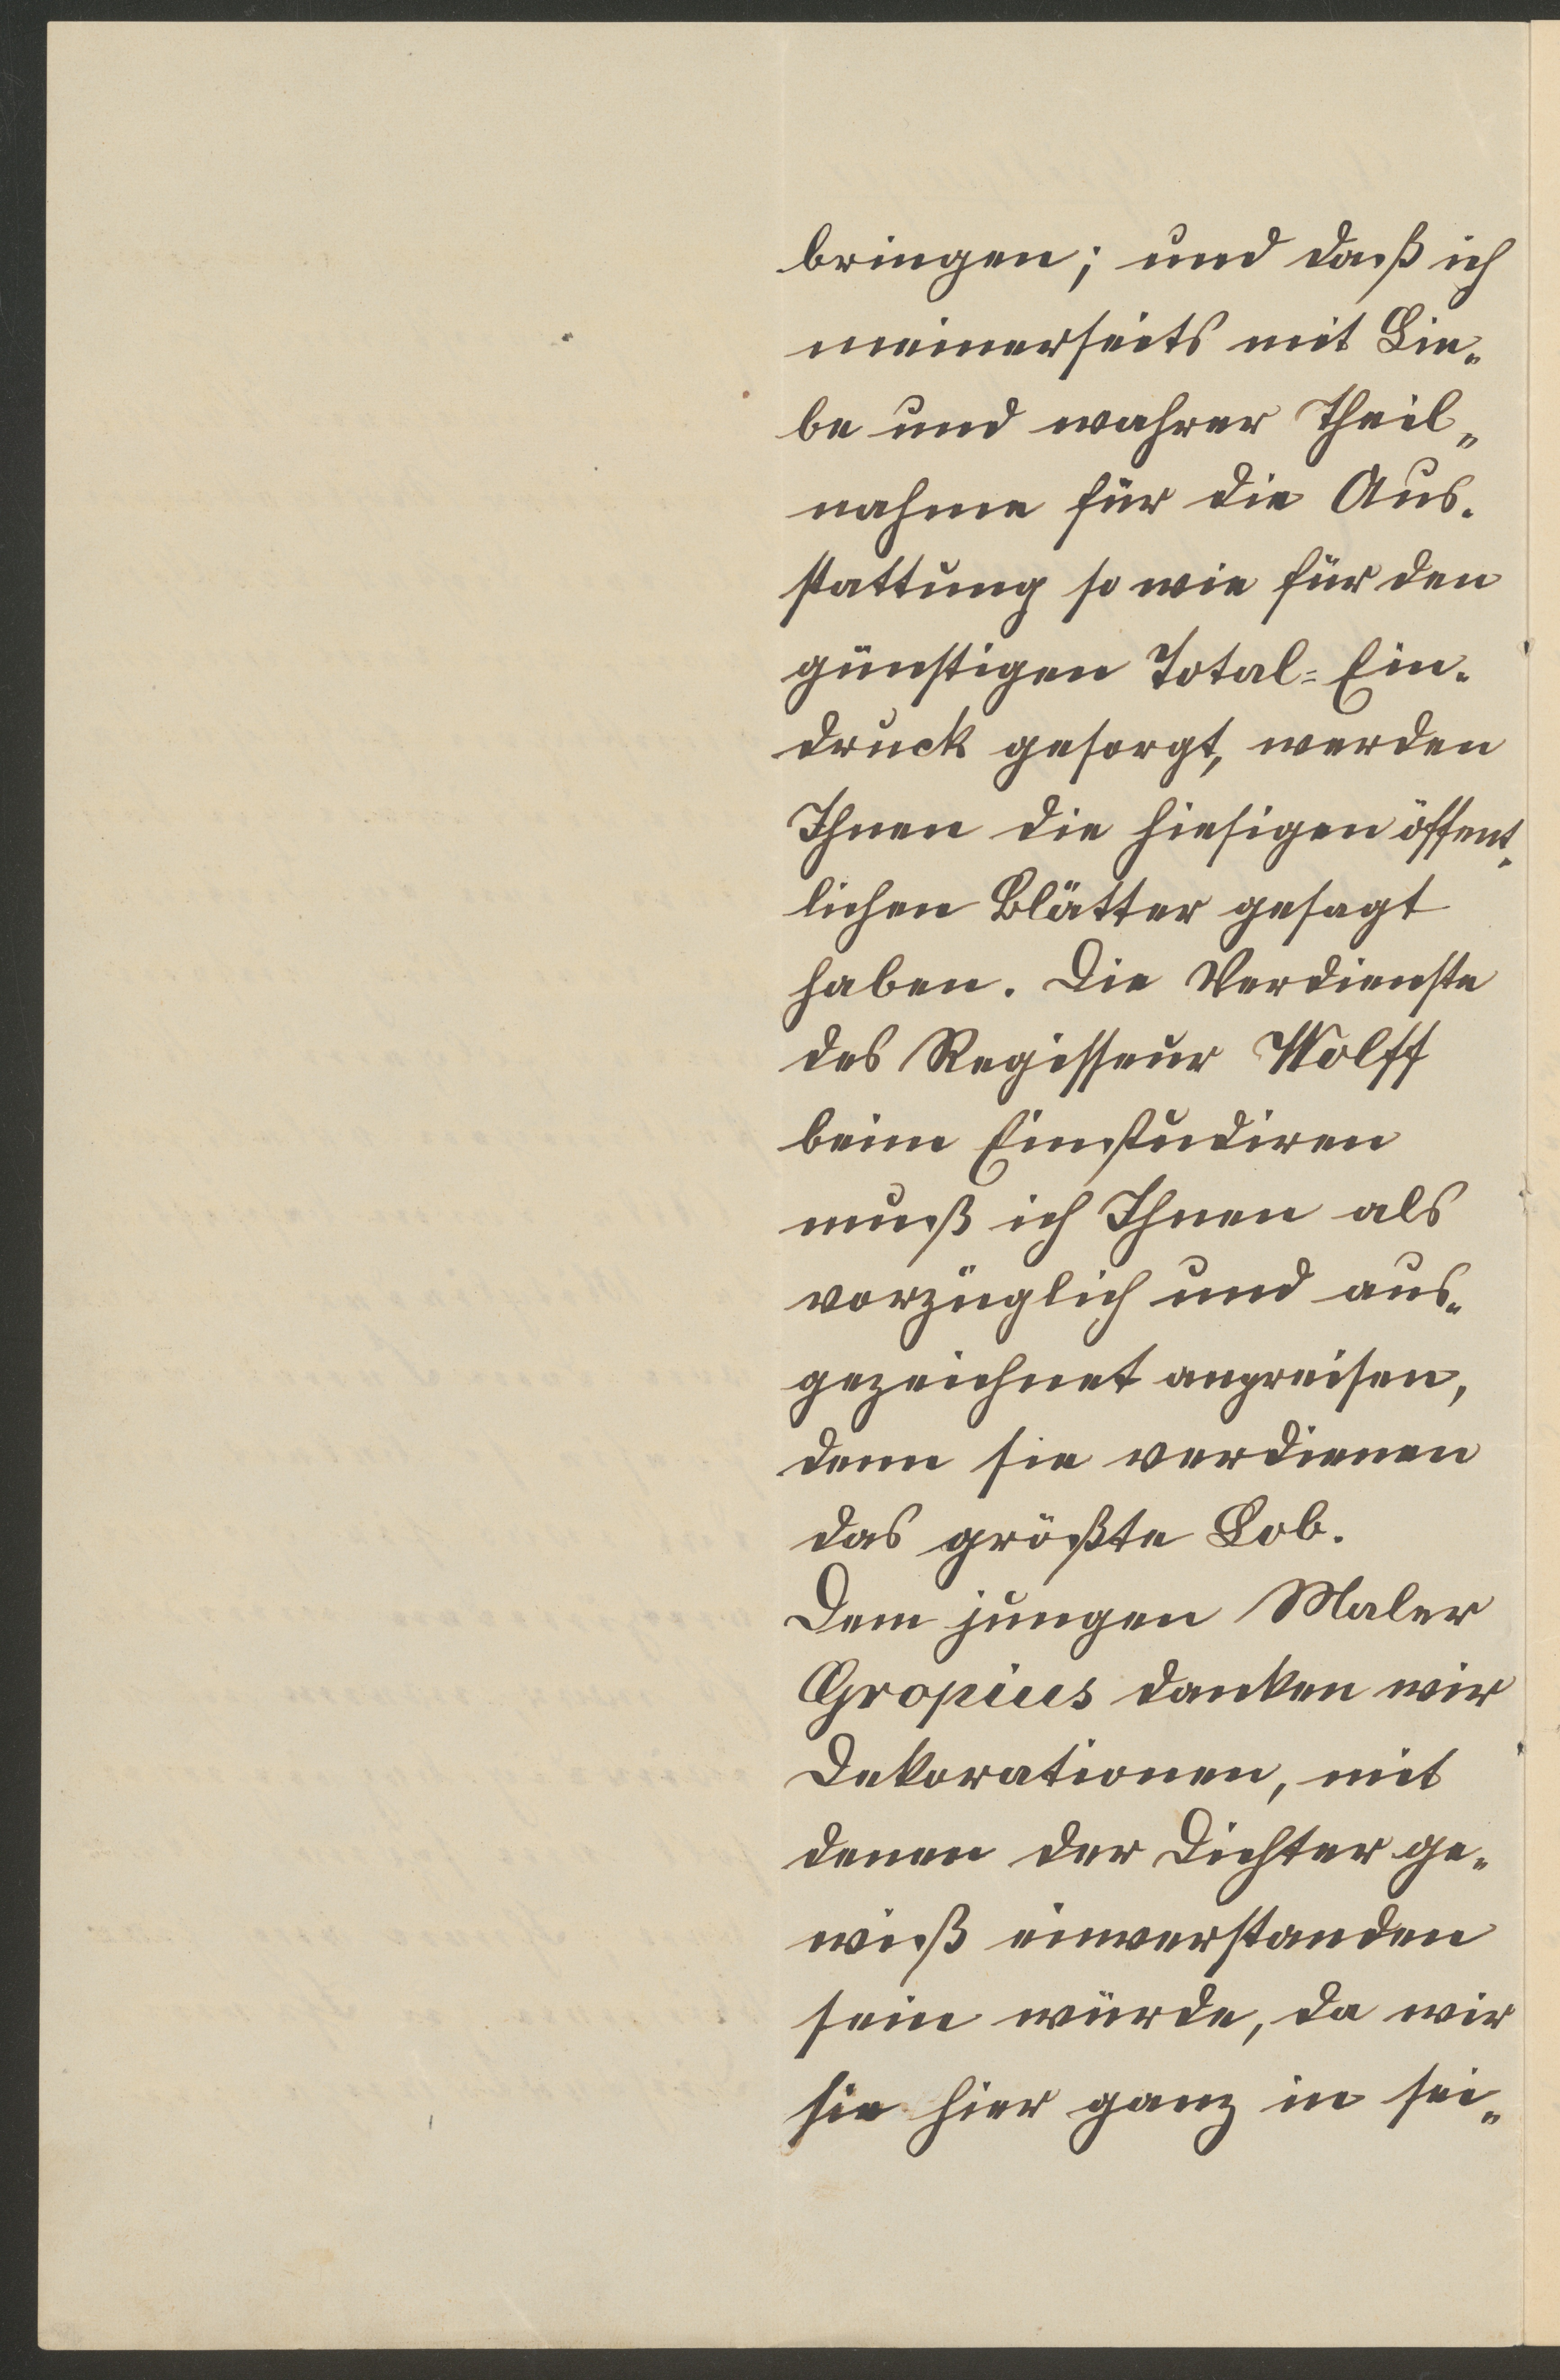 bringen; und daß ich
meinerseits mit Lie„
be und wahrer Theil„
nahme für die Aus„
stattung so wie für den
günstigen Total=Ein„
druck gesorgt, werden
Ihnen die hiesigen öffent„
lichen Blätter gesagt
haben. Die Verdienste
des Regisseur Wolff
beim Einstudiren
muß ich Ihnen als
vorzüglich und aus„
gezeichnet anpreisen,
denn sie verdienen
das größte Lob.
Dem jungen Maler
Gropius danken wir
Dekorationen, mit
denen der Dichter ge„
wiß einverstanden
sein würde, da wir
sie hier ganz in sei„